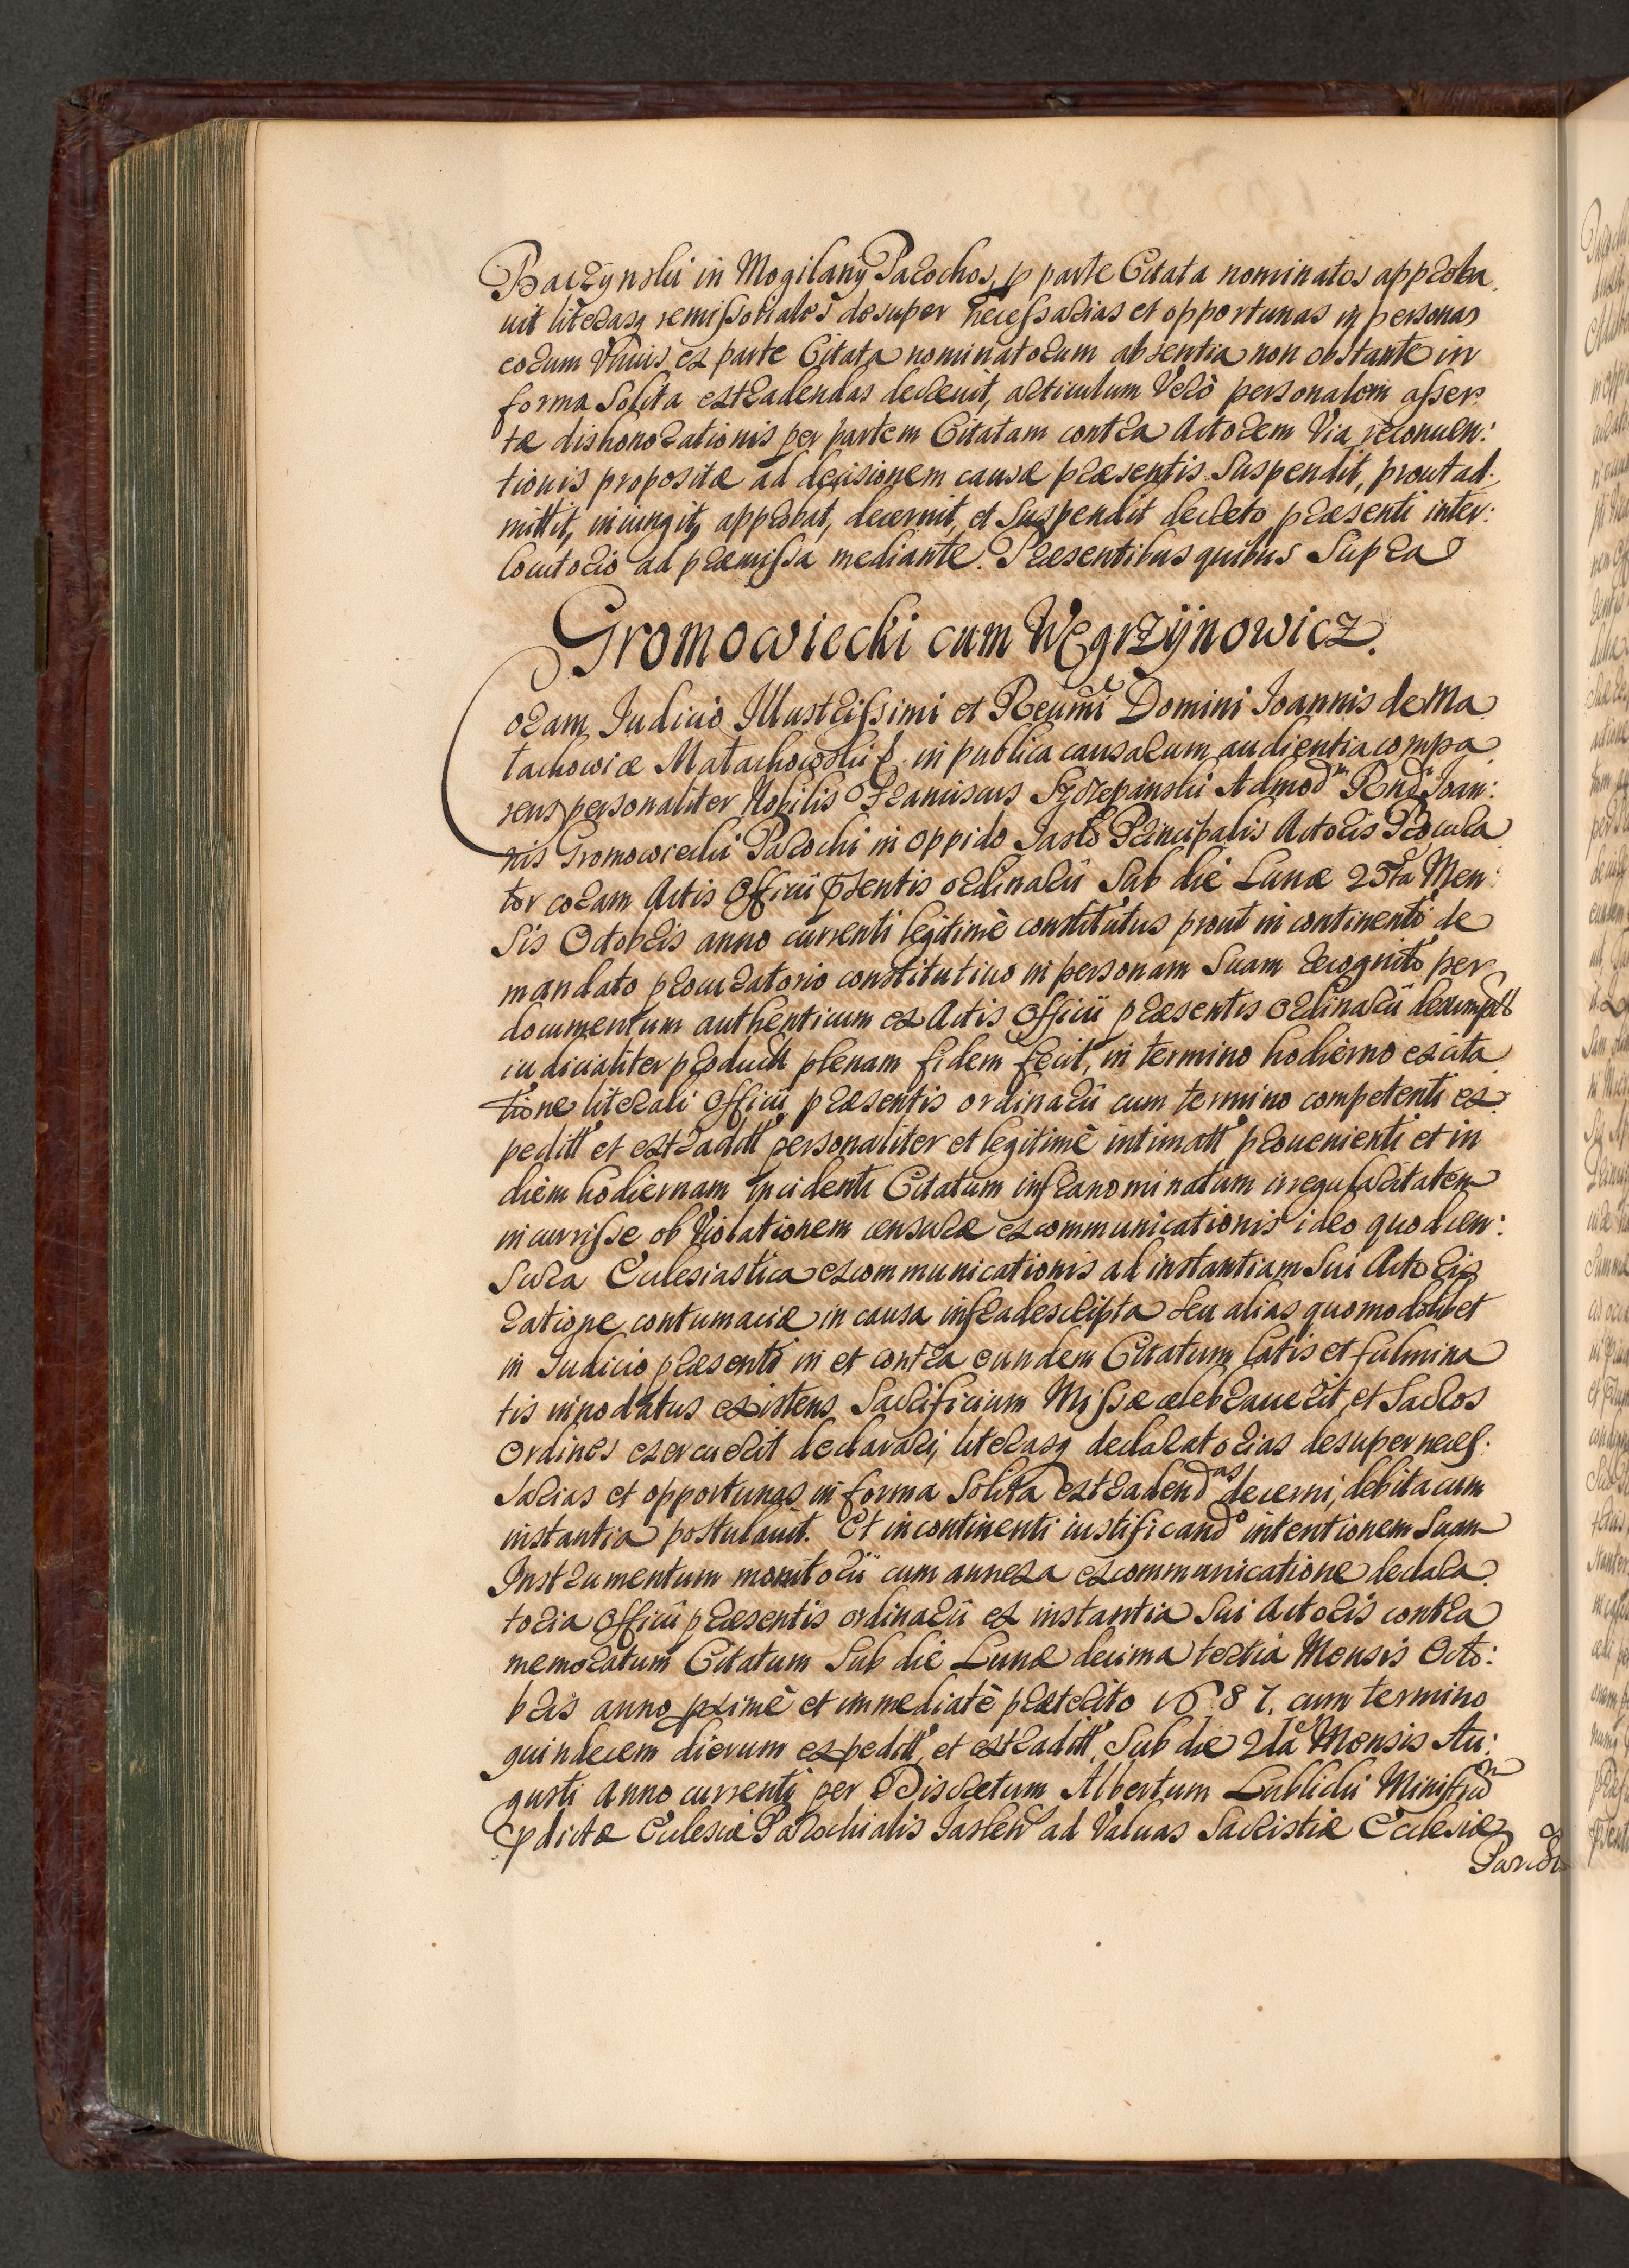 Baczynski in Mogilany Parochos, p parte Citata nominatos approba
uit literasq remissoriales desuper necessarias et opportunas in personas
eorum Unius ex parte Citata nominatorum absentia non obstante in
forma solita extradendas decreuit, articulum Verò personalem asser
tæ dishonorationis per partem Citatam contra Actorem Via reconuen:
tionis propositæ ad decisionem causæ præsentis suspendit, prout ad
mittit, iniungit, approbat, decernit, et suspendit decreto præsenti inter:
locutorio ad præmissa mediante. Præsentibus quibus Supra
Gromowiecki cum Węgrzÿnowicz.
Coram Judicio Illustrissimi et Reumi Domini Joannis de Ma
łachowice Małachowski in publica causarum audientia compa
rens personaliter Nobilis Franciscus Szczepanski Admod Rndi Joan:
nis Gromowiecki Parochi in oppido Jasło Principalis Actoris Procura
tor coram Actis Officii pntis ordinarii Sub die Lunæ 25ta Men
sis Octobris anno currenti legitimè constitutus prout in continenti de
mandato procuratorio constitutiuo in personam suam recognito per
documentum authenticum ex Actis Officii præsentis ordinarii desumptt
iudicialiter productt plenam fidem fecit, in termino hodierno ex cita
tione literali Officii præsentis ordinarii cum termino competenti ex
peditt et extraditt personaliter et legitimè intimatt prouenienti et in
diem hodiernam incidenti Citatum infranominatum irregularitatem
incurrisse ob Violationem censuræ excommunicationis ideo quod cen:
sura Ecclesiastica excommunicationis ad instantiam sui Actoris
ratione contumaciæ in causa infradescripta seu alias quomodolibet
in Judicio præsenti in et contra eundem Citatum latis et fulmina
tis innodatus existens Sacrificium Missæ celebrauerit, et Sacros
Ordines exercuerit declarari, literasq declaratorias desuper necess:
sarias et opportunas in forma solita extradendas decerni, debita cum
instantia postulauit. Et in continenti iustificando intentionem suam
Instrumentum monitorii cum annexa excommunicatione declara
toria Officii præsentis ordinarii ex instantia sui Actoris contra
memoratum Citatum Sub die Lunæ decima tertia Mensis Octo:
bris anno pximè et immediatè præterito 1687. cum termino
quindecem dierum expeditt, et extraditt, Sub die 2da Mensis Au:
gusti Anno currenti per Discretum Albertum Lublicki Ministrum
pdictæ Ecclesiæ Parochialis Jaslen ad Valuas Sacristiæ Ecclesiæ